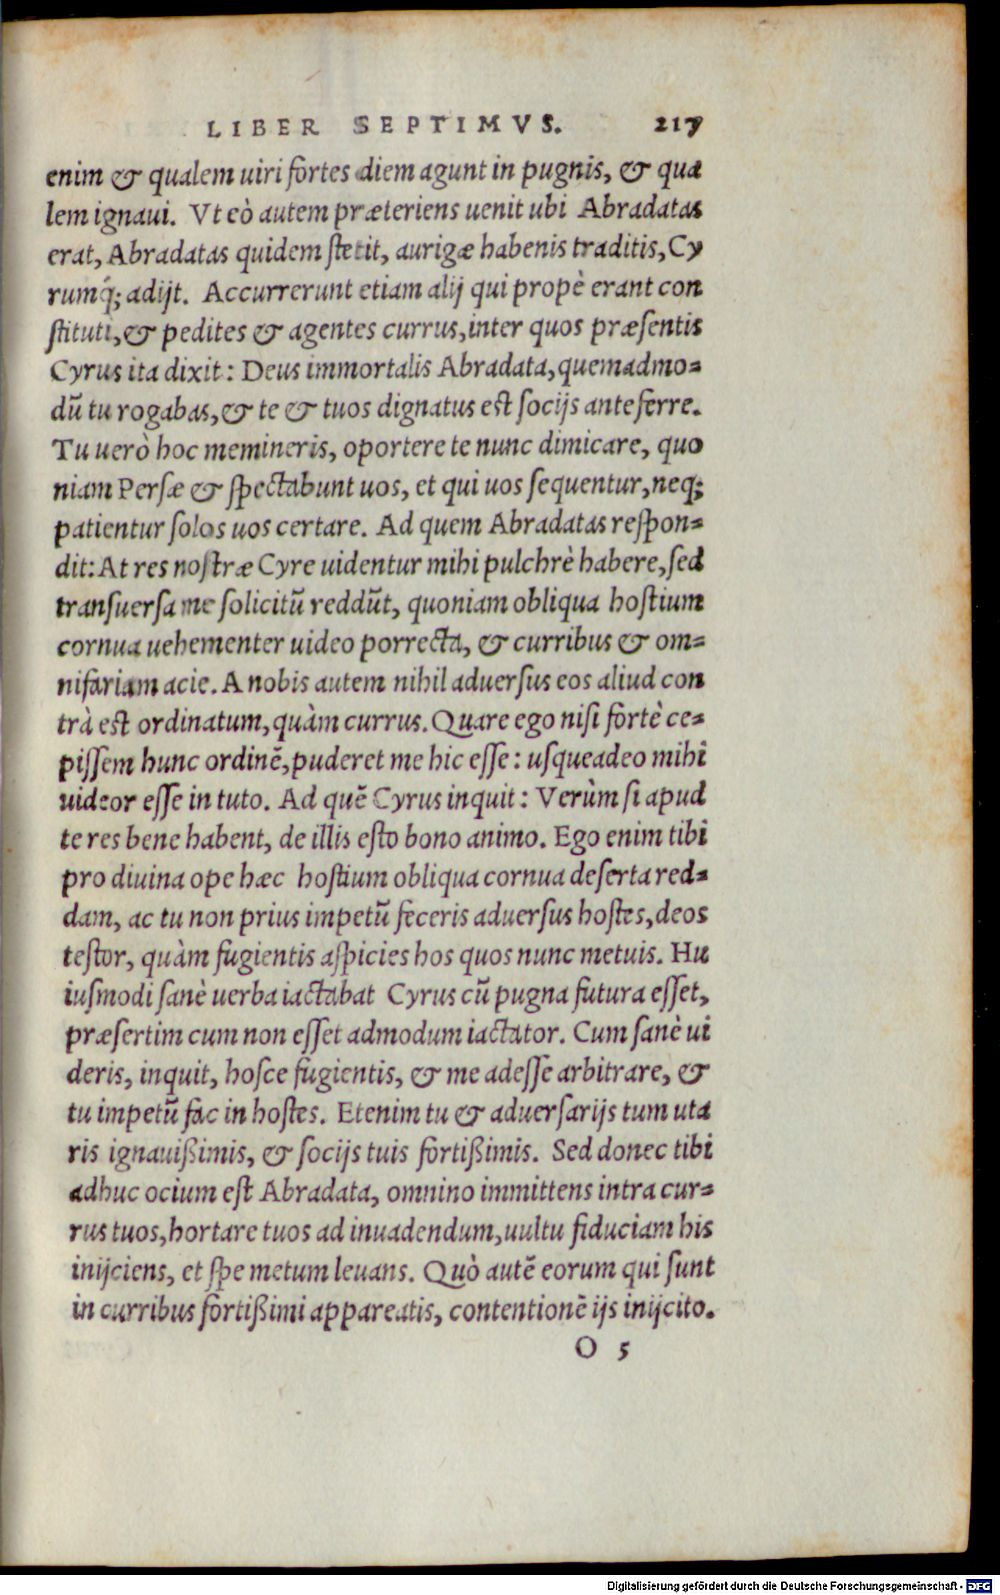 LIBER SEPTIMVS. 217
enim & qualem uiri fortes diem agunt in pugnis, & qua
lem ignaui. Vt eò autem præteriens uenit ubi Abradatas
erat, Abradatas quidem ſtetit, aurigæ habenis traditis, Cy
rumq́; adijt. Accurrerunt etiam alij qui propè erant con
ſtituti, & pedites & agentes currus, inter quos præſentis
Cyrus ita dixit: Deus immortalis Abradata, quemadmo-
dũ tu rogabas, & te & tuos dignatus eſt ſocijs anteferre.
Tu uerò hoc memineris, oportere te nunc dimicare, quo
niam Perſæ & ſpectabunt uos, et qui uos ſequentur, neq;
patientur ſolos uos certare. Ad quem Abradatas reſpon-
dit: At res noſtræ Cyre uidentur mihi pulchrè habere, ſed
tranſuerſa me ſolicitũ reddũt, quoniam obliqua hoſtium
cornua uehementer uideo porrecta, & curribus & om-
nifariam acie. A nobis autem nihil aduerſus eos aliud con
trà eſt ordinatum, quàm currus. Quare ego niſi fortè ce-
piſſem hunc ordinẽ, puderet me hic eſſe: uſqueadeo mihi
uideor eſſe in tuto. Ad quẽ Cyrus inquit: Verùm ſi apud
te res bene habent, de illis eſto bono animo. Ego enim tibi
pro diuina ope hæc hoſtium obliqua cornua deſerta red-
dam, ac tu non prius impetũ feceris aduerſus hoſtes, deos
teſtor, quàm fugientis aſpicies hos quos nunc metuis. Hu
iuſmodi ſanè uerba iactabat Cyrus cũ pugna futura eſſet,
præſertim cum non eſſet admodum iactator. Cum ſanè ui
deris, inquit, hoſce fugientis, & me adeſſe arbitrare, &
tu impetũ fac in hoſtes. Etenim tu & aduerſarijs tum uta
ris ignauißimis, & ſocijs tuis fortißimis. Sed donec tibi
adhuc ocium eſt Abradata, omnino immittens intra cur-
rus tuos, hortare tuos ad inuadendum, uultu fiduciam his
inijciens, et ſpe metum leuans. Quò autẽ eorum qui ſunt
in curribus fortißimi appareatis, contentionẽ ijs inijcito.
O 5
Digitalisierung gefördert durch die Deutsche Forschungsgemeinschaft - DFG